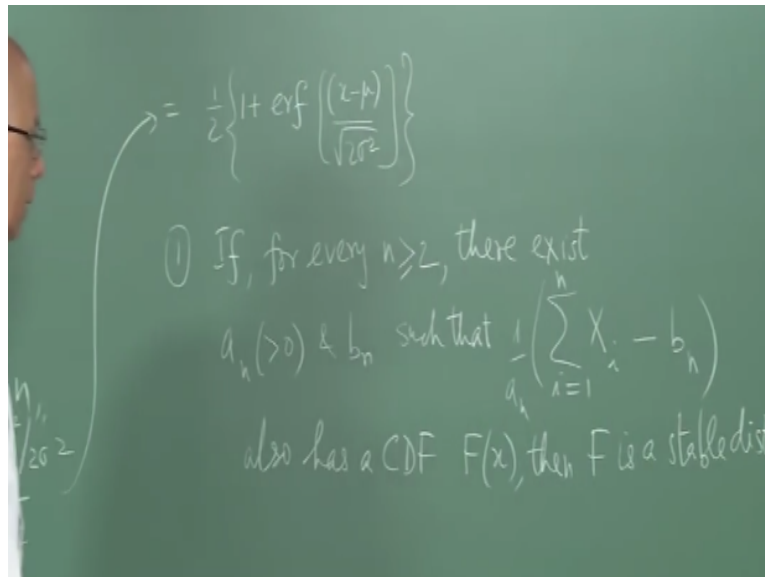 = 1/2 {1 + erf [(x-μ)/√2σ²]}
① If, for every n ≥ 2, there exist
aₙ (>0) & bₙ such that 1/aₙ (∑ᵢ₌₁ⁿ Xᵢ - bₙ)
also has a CDF F(x), then F is a stable dist
2σ²